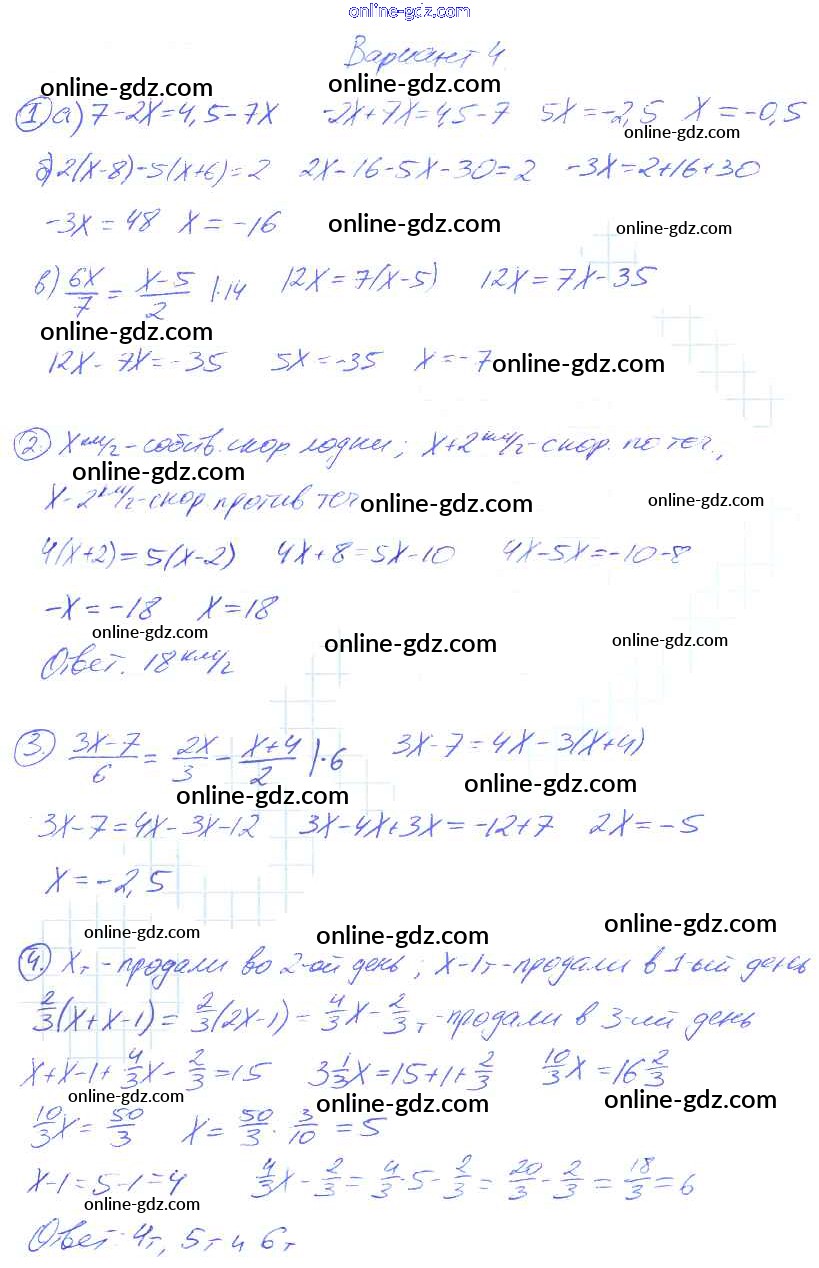 online-gdz.com
Вариант 4
online-gdz.com online-gdz.com
1 а) 7-2x=4,5-7x -2x+7x=4,5-7 5x=-2,5 x=-0,5
online-gdz.com
б) 2(x-8)-5(x+6)=2 2x-16-5x-30=2 -3x=2+16+30
-3x=48 x=-16 online-gdz.com online-gdz.com
в) 6x/7 = x-5/2 |·14 12x=7(x-5) 12x=7x-35
online-gdz.com
12x-7x=-35 5x=-35 x=-7 online-gdz.com
2. x км/г-собств. скор. лодки; x+2 км/г-скор. по теч.,
online-gdz.com
x-2 км/г-скор. против теч online-gdz.com online-gdz.com
4(x+2)=5(x-2) 4x+8=5x-10 4x-5x=-10-8
-x=-18 x=18
online-gdz.com online-gdz.com online-gdz.com
Ответ. 18 км/г
3. 3x-7/6 = 2x/3 - x+4/2 |·6 3x-7=4x-3(x+4)
online-gdz.com online-gdz.com
3x-7=4x-3x-12 3x-4x+3x=-12+7 2x=-5
x=-2,5
online-gdz.com online-gdz.com online-gdz.com
4. xт-продали во 2-ой день; x-1т-продали в 1-ый день
2/3(x+x-1)=2/3(2x-1)=4/3x-2/3т-продали в 3-ий день
x+x-1+4/3x-2/3=15 3 1/3x=15+1+2/3 10/3x=16 2/3
online-gdz.com online-gdz.com online-gdz.com
10/3x=50/3 x=50/3·3/10=5
x-1=5-1=4 4/3x-2/3=4/3·5-2/3=20/3-2/3=18/3=6
online-gdz.com online-gdz.com
Ответ: 4т, 5т и 6т